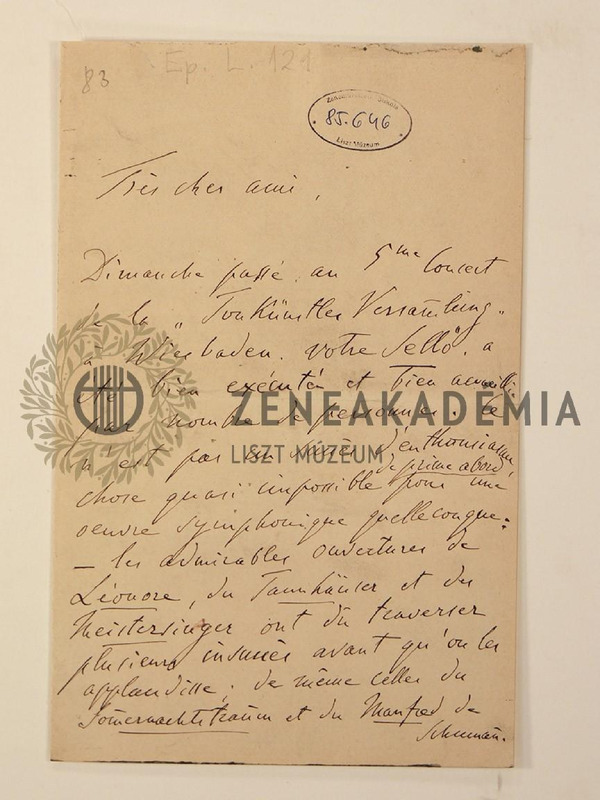 83
Ep. L. 121
Zeneakadémia
85.646
Liszt Múzeum
Très cher ami,
Dimanche passé, au 5me Concert
de la "Tonkünstler Versam̄lung"
à Wiesbaden, votre Sellö, a
été bien exécutée et bien accueillie
par nombre de personnes. Ce
n'est pas un succès d'enthousiasme
de prime abord,
chose quasi impossible pour une
oeuvre symphonique quelleconque:
– les admirables ouvertures de
Léonore, du Tannhäuser et des
Meistersinger ont dû traverser
plusieurs insuccès avant qu'on les
applaudisse; de même celles du
Som̄ernachtstraum et du Manfred de
Schuman̄.
ZENEAKADÉMIA
LISZT MÚZEUM